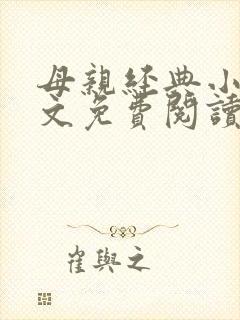 母親經典小
文免費閱讀
崔與之